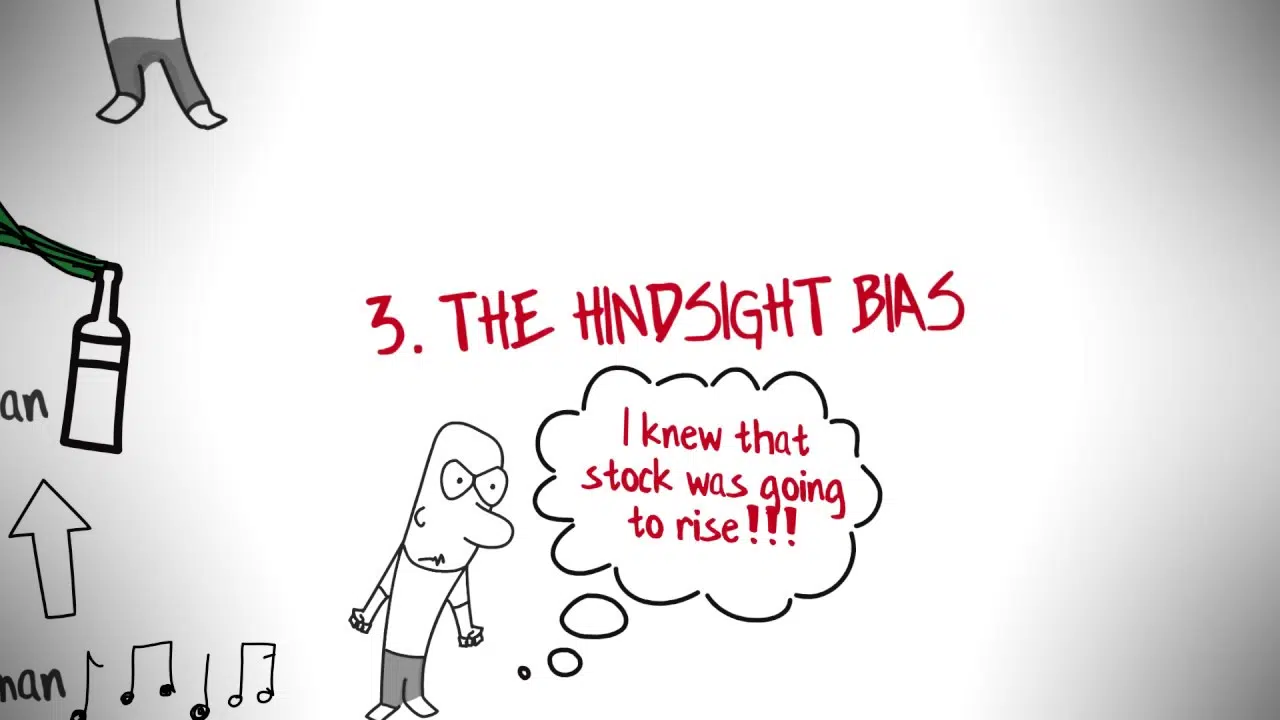 3. THE HINDSIGHT BIAS
I knew that
stock was going
to rise!!!
an
nan